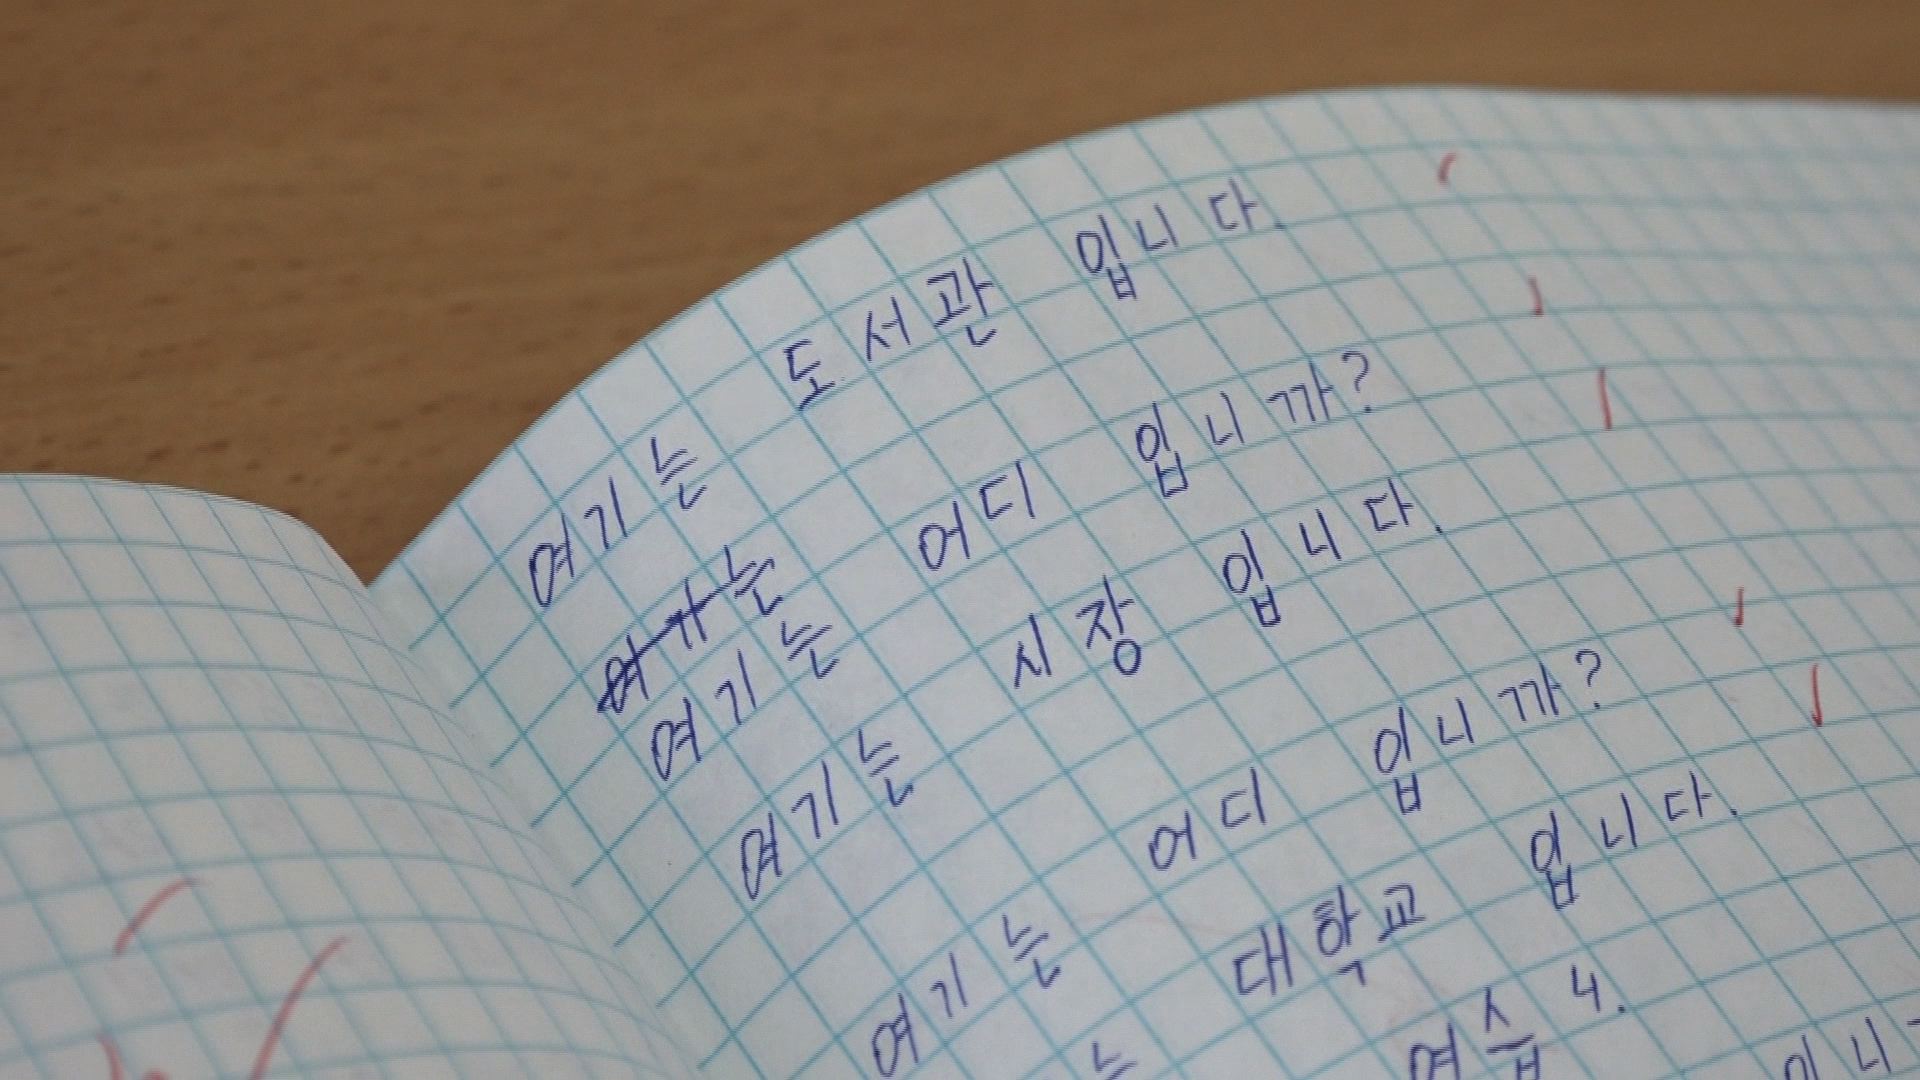 여기는 도서관 입니다.
여가는
여기는 어디 입니까?
여기는 시장 입니다.
여기는 어디 입니까?
는 대학교 입니다.
연습 4.